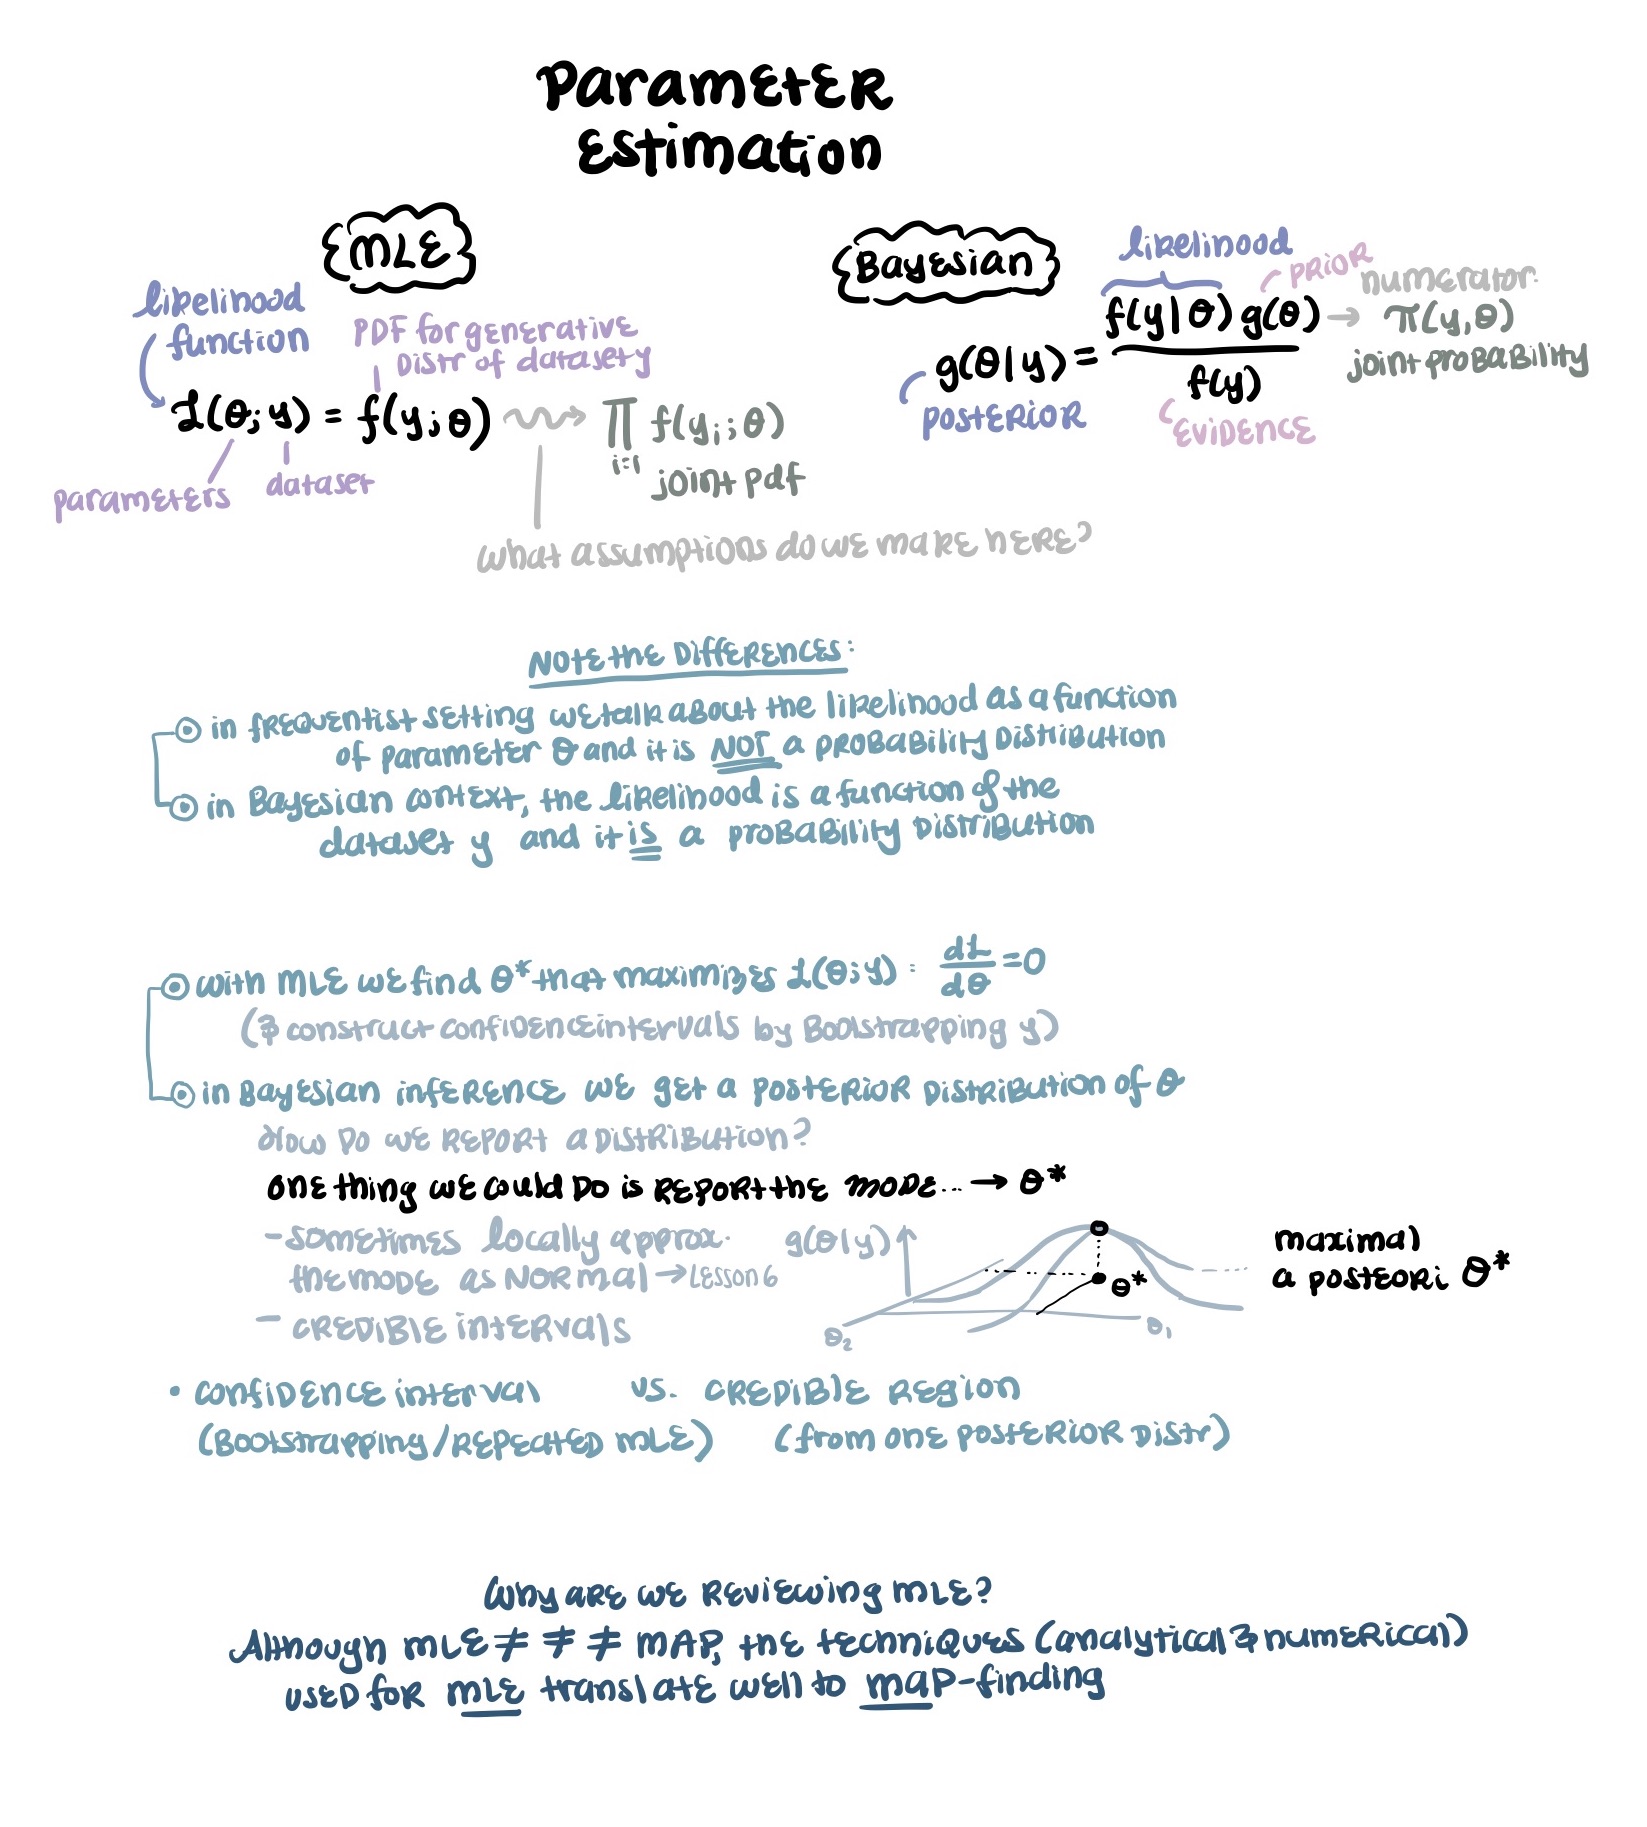 Parameter
Estimation
MLE
likelihood
function
PDF for generative
Distr of dataset y
L(θ; y) = f(y; θ)
∏ f(yᵢ; θ)
i=1
joint pdf
parameters
dataset
what assumptions do we make here?
Bayesian
likelihood
PRIOR
numerator:
g(θ|y) = f(y|θ) g(θ) → π(y,θ)
f(y)
joint probability
POSTERIOR
EVIDENCE
NOTE the DIFFERENCES:
in frequentist setting we talk about the likelihood as a function
of parameter θ and it is NOT a probability distribution
in Bayesian context, the likelihood is a function of the
dataset y and it is a probability distribution
with MLE we find θ* that maximizes L(θ; y) : dL/dθ = 0
(& construct confidence intervals by Bootstrapping y)
in Bayesian inference we get a posterior distribution of θ
How do we report a distribution?
one thing we could do is report the mode... → θ*
- sometimes locally approx.
the mode as normal → Lesson 6
- credible intervals
g(θ|y)
θ*
θ₂
θ₁
maximal
a posteori θ*
• confidence interval vs. credible region
(Bootstrapping/repeated MLE) (from one posterior distr)
Why are we reviewing MLE?
Although MLE ≠ ≠ ≠ MAP, the techniques (analytical & numerical)
used for MLE translate well to MAP-finding